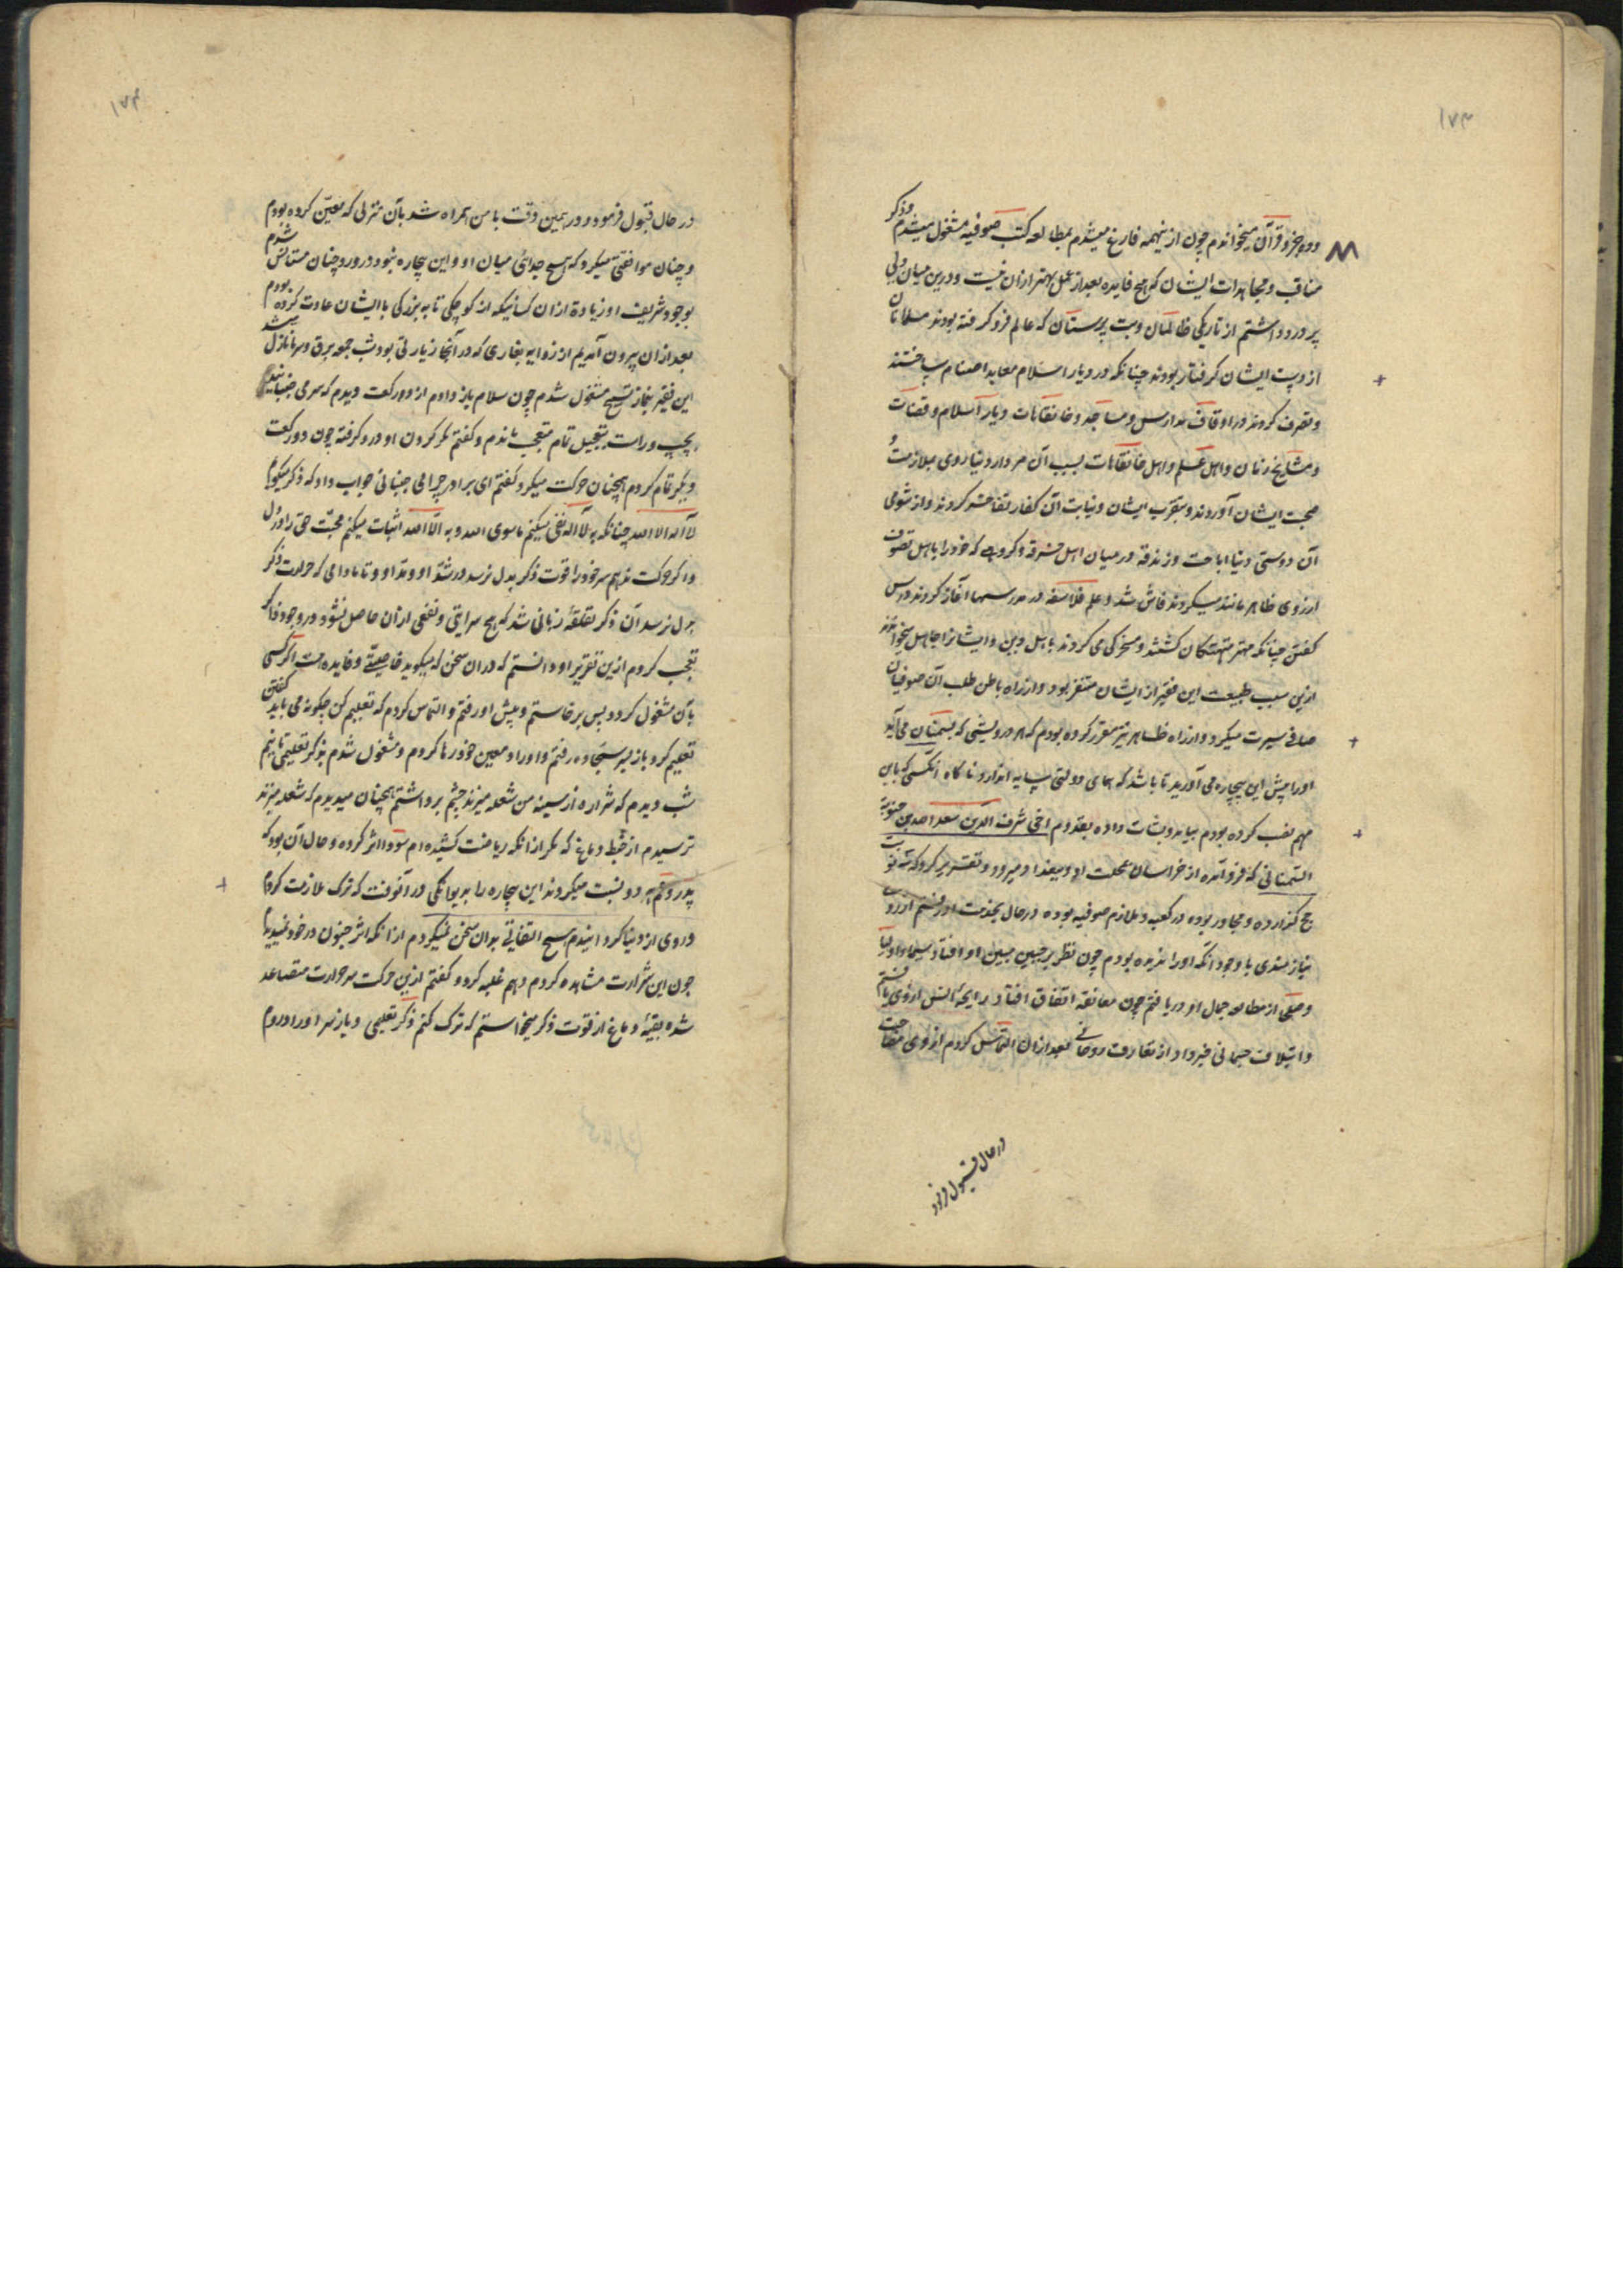 ۱۷۳
وذکر
ودو جزو قرآن میخواندم چون ازینهمه فارغ میشدم بمطالعه کتب صوفیه مشغول میشدم
مناقب و مجاهدات ایشان که هیچ فایده بعد از عمل بهتر ازان نیست ودرین میان دلی
پر درد داشتم از تاریکی ظالمان وبت پرستان که عالم فرو گرفته بودند مسلمانان
از دست ایشان گرفتار بودند چنانکه در دیار اسلام معابد اصنام ساختند
وتصرف کردند در اوقاف مدارس ومساجد وخانقاهات ودیار اسلام وقضات
ومشایخ زمان واهل علم واهل خانقاهات بسبب آن مردار دنیا روی بملازمت
صحبت ایشان آوردند وبتقرب ایشان ونیابت آن کفار تفاخر کردند واز شومی
آن دوستی دنیا اباحت وزندقه در میان اهل خرقه وگروهی که خود را باهل تصوف
از روی ظاهر مانند میکردند فاش شد وعلم فلاسفه در مدرسها آغاز کردند درس
گفتن چنانکه مهتر متهتکان گشتند ومسخرگی می کردند باهل دین وایشانرا جاهل میخواندند
ازین سبب طبیعت این فقیر از ایشان متنفر بود واز راه باطن طلب آن صوفیان
صافی سیرت میکرد واز راه ظاهر نیز مقرر کرده بودم که هر درویشی که بسمنان می آید
اورا پیش این بیچاره می آورید تا باشد که همای دولتی سایه اندازد ناگاه آنکسی که باین
مهم نصب کرده بودم بیامد وبشارت داد بقدوم اخی شرف الدین سعد الله بن حنویه
السمنانی که فرو آمده از خراسان بعجلت او ببغداد میرود وتقریر کرد که سه نوبت
حج گزارده ومجاور بوده در کعبه وملازم صوفیه بوده در حال بخدمت او رفتم از روی
نیازمندی با وجود آنکه اورا ندیده بودم چون نظر بر جبین مبین او افتاد سیما اولیا
وصفی از مطالعه جمال او دریافتم چون معانقه اتفاق افتاد رایحه انس ازوی یافتم
وایتلاف جسمانی خبر داد از تعارف روحانی بعد ازان التماس کردم از وی مصاحبت
در حال قبول فرمود
۱۷۴
در حال قبول فرمود ودر همین وقت با من همراه شد بآن منزلی که معین کرده بودم
وچنان موافقتی میکرد که هیچ جدائی میان او واین بیچاره نبود در ورود چنان مستانس شدم
بوجود شریف او زیادة ازان کسانیکه از کوچکی تا به بزرگی باایشان عادت کرده بودم
بعد ازان بیرون آمدیم از زوایه بغاری که در آنجا زیارتی بود شب جمعه برق وسرما نازل شد
این فقیر بنماز تسبیح مشغول شدم چون سلام باز دادم از دو رکعت دیدم که سر می جنبانید
بچپ وراست بتعجیل تمام متعجب ماندم وگفتم مگر گردن او درد گرفته چون دو رکعت
دیگر تمام کردم همچنان حرکت میکرد گفتم ای برادر چرا می جنبانی جواب داد که ذکر میگویم
لا اله الا الله چنانکه به لا اله نفی میکنم ماسوی الله وبه الا الله اثبات میکنم محبت حق را در دل
واگر حرکت ندهم سر خود را قوت ذکر بدل نرسد در شد او ومد او وتا مادامی که حرارت ذکر
بدل نرسد آن ذکر تقلقه زبانی شد که هیچ سرایتی ونفعی ازان حاصل نشود در وجود ذاکر
تعجب کردم ازین تقریر او ودانستم که دران سخن که میگوید خاصیتی وفایده هست اگر کسی
بآن مشغول گردد پس برخاستم وپیش او رفتم والتماس کردم که تعلیم کن چگونه می باید گفتن
تعلیم کرد باز بسر سجاده رفتم واوراد معین خود رها کردم ومشغول شدم بذکر تعلیمی تا نیم
شب دیدم که شراره از سینه من شعله میزند چشم برداشتم همچنان میدیدم که شعله میزند
ترسیدم از خبط دماغ که مگر از آنکه ریاضت کشیده ام سودا اثر کرده وحال آن بود که
پدر وعم هر دو نسبت میکردند این بیچاره را بدیوانگی در آنوقت که ترک ملازمت کردم
وروی از دنیا گردانیدم هیچ التفاتی بدان سخن نمیکردم از آنکه اثر جنون در خود نمیدیدم
چون این شرارت مشاهده کردم وهم غلبه کرد وگفتم ازین حرکت سر حرارت متصاعد
شده بقیه دماغ از قوت ذکر میخواستم که ترک کنم ذکر تعلیمی وباز سر اوراد روم